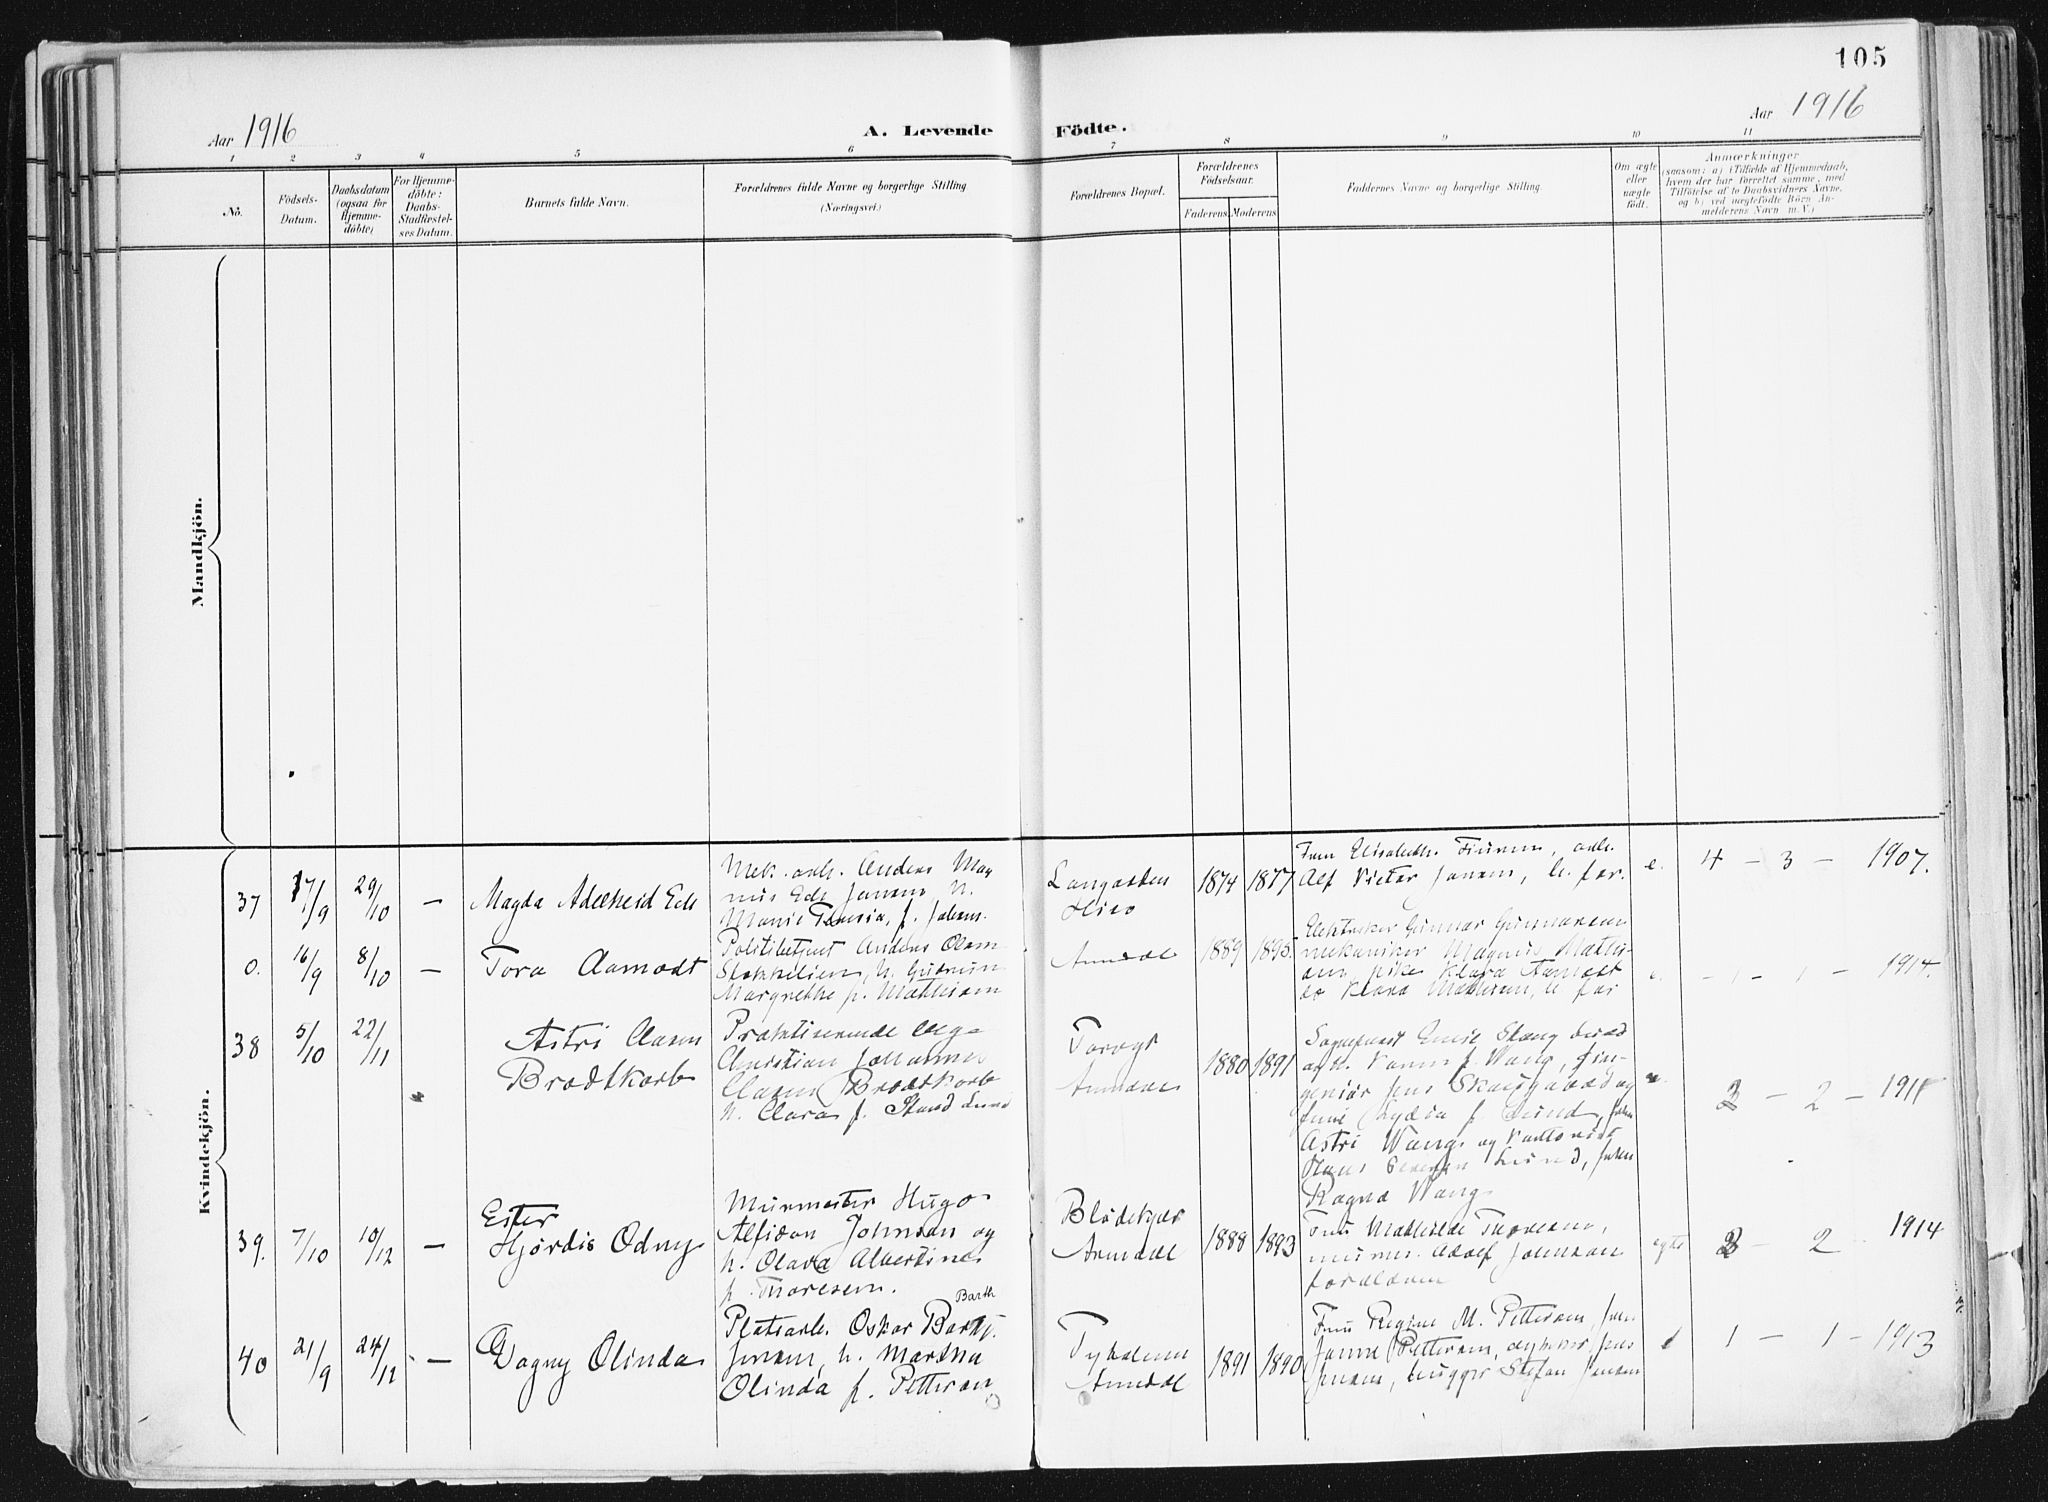 105
Aar 1916
A. Levende Födte.
Aar 1916
1 2 3 4 5 6 7 8 9 10 11
No.
Födsels-
Datum.
Daabsdatum
(ogsaa for
Hjemme-
döbte)
For Hjemme-
döbte:
Daabs-
Stadfæstel-
ses Datum.
Barnets fulde Navn.
Forældrenes fulde Navne og borgerlige Stilling
(Næringsvei.)
Forældrenes Bopæl.
Forældrenes
Födselsaar.
Faderens Moderens
Faddernes Navne og borgerlige Stilling.
Om ægte
eller
uægte
født.
Anmærkninger
(saasom: a) i Tilfælde af Hjemmedaab,
hvem der har forrettet samme, med
Tilföielse af to Daabsvidners Navne,
og b) ved uægtefödte Börn An-
melderens Navn m. V.)
Mandkjön.
Kvindekjön.
37
17/9
29/10
—
Magda Adelheid Eds
Mek. arb. Anders Mag
nus Eds Jensen h.
Marie Teresia, f. Johans.
Langsæden
Hisø
1874
1877
Fru Elisabeth, arb.
Alf Victor Jensen, b. for.
e.
4 — 3 — 1907.
0.
16/9
8/10
—
Tora Aamodt
Politibetjent Anders Olsen
h. Gudrun
Margrethe f. Mathisen
Arendal
1889
1895.
Gunnar Gunnarsen
mekaniker Magnus Mathi-
sen, pike Klara Aamodt
do Klara Mathisen, b for
e.
— 1 — 1 — 1914.
38
5/10
22/11
Astri Aasen
Brodtkorb
Praktiserende læge
Christian Johannes
Aasen Brodtkorb
h. Clara f. Lund
Arendal
1880
1891
Sogneprest Emil Stang
og h. Karen f. Wang,
geniør Jens og
frue Lydia f. Lund, frøken
Astri Wang og
Hans Lund, frøken
Ragna Wang
3 — 2 — 1911
39.
7/10
10/12
—
Ester
Hjørdis Odny
Murmester Hugo
Alfidon Johnsen og
h. Olava Albertine
f. Thoresen.
Blødekjær
Arendal
1888
1893
Fru Mathilde Thoresen,
murmes. Adolf Johnsen
foreldrene
egte
3 — 2 1914
40
21/9
24/12
—
Dagny Olinda
Barth
Pladsarb. Oskar Barth
Jensen, h. Martha
Olinda f. Pettersen
Tyholmen
Arendal
1891
1890
Fru Regine M. Pettersen, frøken
Janne Pettersen, Jens
Jensen, brygger Stefan Jensen
e
1 — 1 — 1913